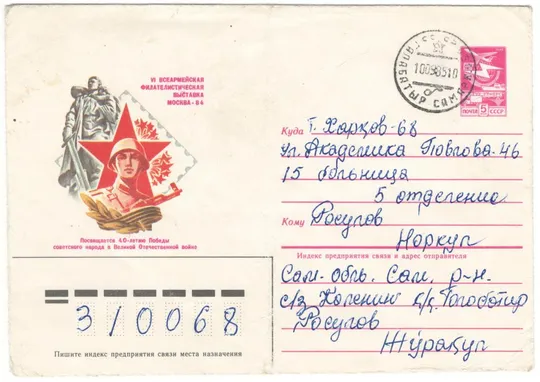 VI ВСЕАРМЕЙСКАЯ
ФИЛАТЕЛИСТИЧЕСКАЯ
ВЫСТАВКА
МОСКВА - 84
Посвящается 40-летию Победы
советского народа в Великой Отечественной войне
ПОЧТА 5 СССР
Куда г. Харцов-68
Ул. Академика Повгова-46
15 больница
5 отделение
Кому Росулов
Норкул
Индекс предприятия связи и адрес отправителя
Сам-обл. Сам. р-н.
с/з Коленин к/к. Гогоботир
Росулов
Жўракул
310068
Пишите индекс предприятия связи места назначения